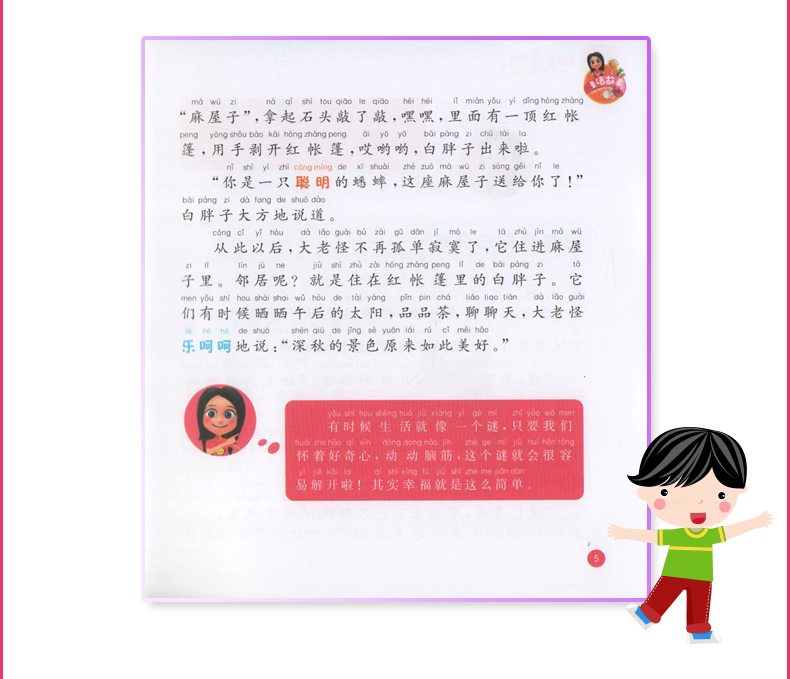 童话故事
má wū zi ná qǐ shí tou qiāo le qiāo hēi hēi lǐ miàn yǒu yì dǐng hóng zhàng
“麻屋子”,拿起石头敲了敲,嘿嘿,里面有一顶红帐
peng yòng shǒu bāo kāi hóng zhàng peng āi yō yō bái pàng zi chū lái la
篷,用手剥开红帐篷,哎哟哟,白胖子出来啦。
nǐ shì yì zhī cōng míng de xī shuài zhè zuò má wū zi sòng gěi nǐ le
“你是一只聪明的蟋蟀,这座麻屋子送给你了!”
bái pàng zi dà fang de shuō dào
白胖子大方地说道。
cóng cǐ yǐ hòu dà lǎo guài bú zài gū dān jì mò le tā zhù jìn má wū
从此以后,大老怪不再孤单寂寞了,它住进麻屋
zi lǐ lín jū ne jiù shì zhù zài hóng zhàng peng lǐ de bái pàng zi tā
子里。邻居呢?就是住在红帐篷里的白胖子。它
men yǒu shí hou shài shai wǔ hòu de tài yáng pǐn pin chá liáo liao tiān dà lǎo guài
们有时候晒晒午后的太阳,品品茶,聊聊天,大老怪
lè hē hē de shuō shēn qiū de jǐng sè yuán lái rú cǐ měi hǎo
乐呵呵地说:“深秋的景色原来如此美好。”
yǒu shí hou shēng huó jiù xiàng yí gè mí zhǐ yào wǒ men
有时候生活就像一个谜,只要我们
huái zhe hào qí xīn dòng dong nǎo jīn zhè ge mí jiù huì hěn róng
怀着好奇心,动动脑筋,这个谜就会很容
yì jiě kāi la qí shí xìng fú jiù shì zhè me jiǎn dān
易解开啦!其实幸福就是这么简单。
5